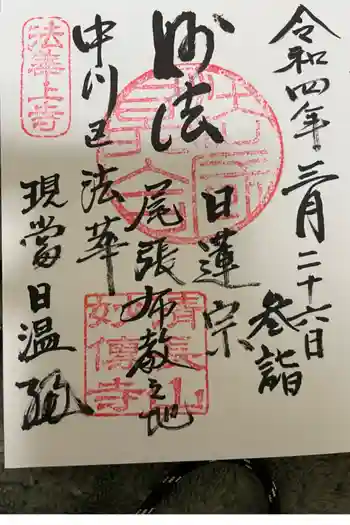 令和四年三月二十六日
参詣
日蓮宗
妙法
尾張布教之地
中川区法華
現當日温
法華上寺
清長山
妙傳寺